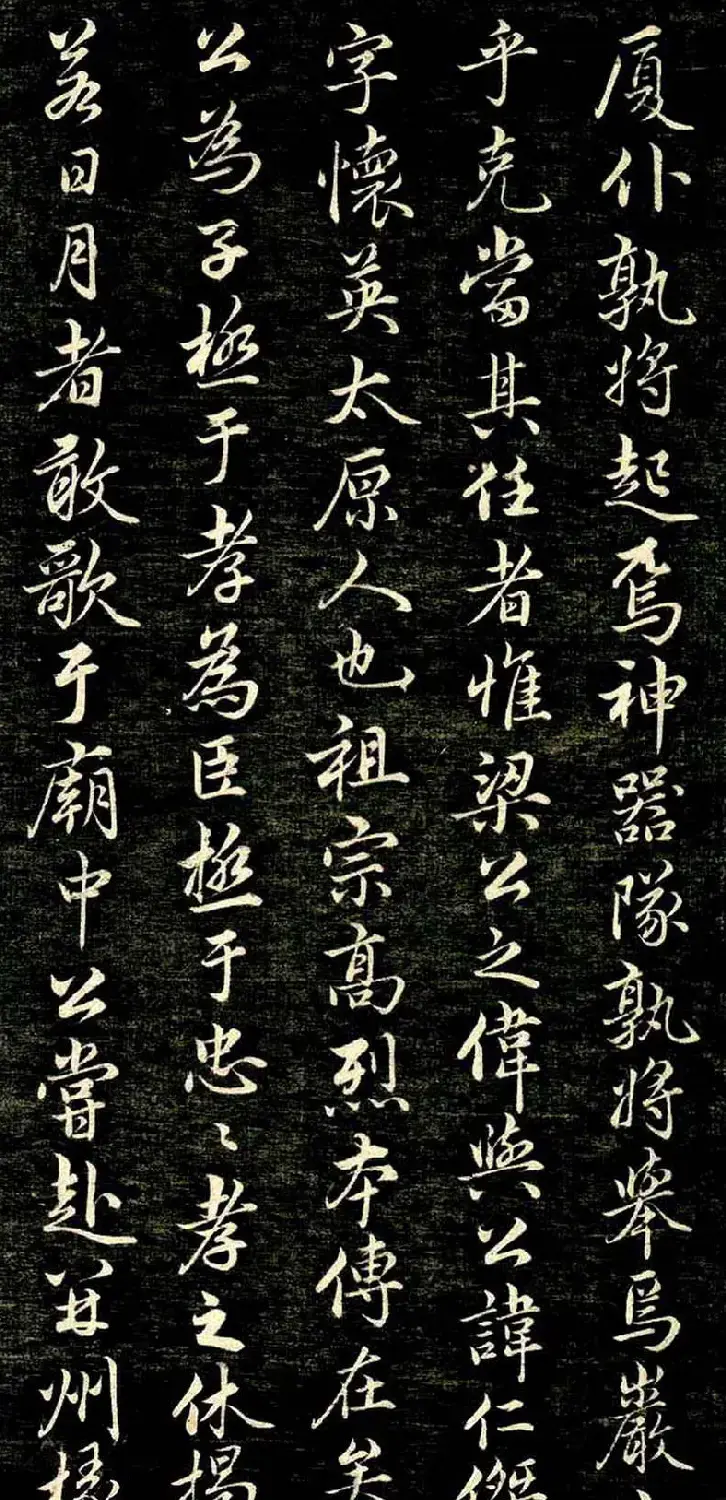 厦仆孰将起焉神器隊孰将舉焉巖
乎克當其任者惟梁公之偉與公諱仁傑
字懷英太原人也祖宗高烈本傳在矣
公為子極于孝為臣極于忠〻孝之休揭
若日月者敢歌于廟中公嘗赴并州掾